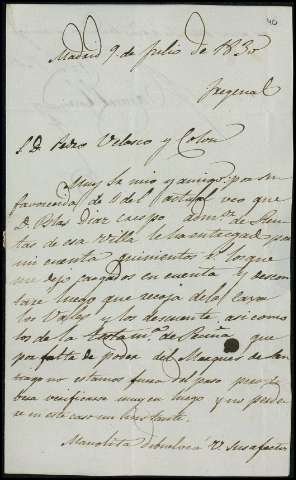 40
Madrid 9 de Julio de 1830
Fregenal
S. D. Pedro Velasco y Colon
Muy Sr mio y amigo: por su
favorecida de 2 del actual veo que
D. Blas Diaz Crespo admor. de
de esa Villa le ha entregado por
mi cuenta quinientos rs. los que
me dejo pagados en cuenta y
luego que recoja de la
los Vales y los descuente, asi como
los de la de que
por falta de poder del Marques de
no estamos fuera del paso
verificarse muy en luego y no
se en este caso un instante.
Manolita V. sus afectos